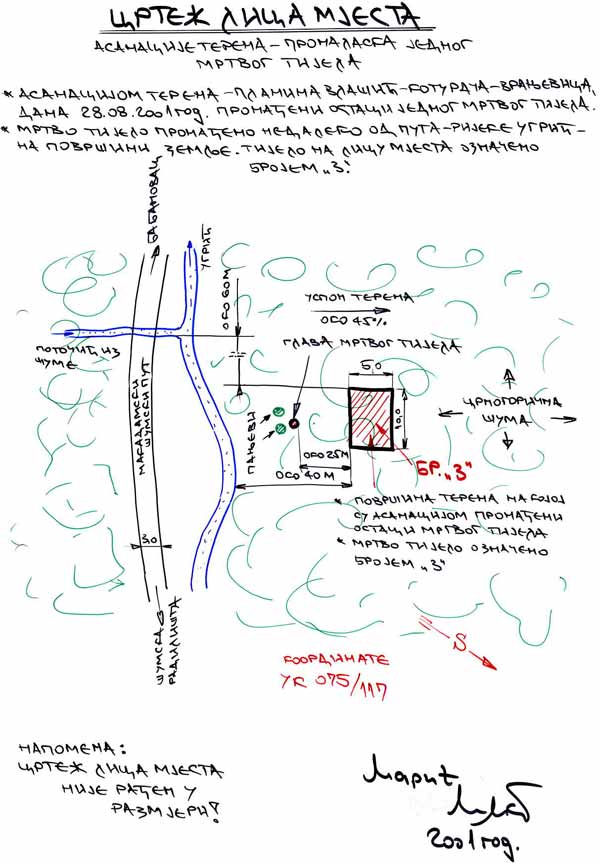 ЦРТЕЖ ЛИЦА МЈЕСТА
АСАНАЦИЈЕ ТЕРЕНА - ПРОНАЛАСКА ЈЕДНОГ
МРТВОГ ТИЈЕЛА
* АСАНАЦИЈОМ ТЕРЕНА - ПЛАНИНА ВЛАШИЋ - КОТУРАЧА - ВРАЊЕВИЦА,
ДАНА 28.08.2001 год. ПРОНАЂЕНИ ОСТАЦИ ЈЕДНОГ МРТВОГ ТИЈЕЛА.
* МРТВО ТИЈЕЛО ПРОНАЂЕНО НЕДАЛЕКО ОД ПУТА - РИЈЕКЕ УГРИЋ -
НА ПОВРШИНИ ЗЕМЉЕ. ТИЈЕЛО НА ЛИЦУ МЈЕСТА ОЗНАЧЕНО
БРОЈЕМ „3".
БАБАНОВАЦ
УГРИЋ
ОКО 60 М
УСПОН ТЕРЕНА
ОКО 45%
ПОТОЧИЋ ИЗ
ШУМЕ
ГЛАВА МРТВОГ ТИЈЕЛА
5,0
10,0
МАКАДАМСКИ
ШУМСКИ ПУТ
ПАЊЕВИ
ЦРНОГОРИЧНА
ШУМА
ОКО 25 М
ОКО 40 М
БР. „3"
* ПОВРШИНА ТЕРЕНА НА КОЈОЈ
СУ АСАНАЦИЈОМ ПРОНАЂЕНИ
ОСТАЦИ МРТВОГ ТИЈЕЛА
* МРТВО ТИЈЕЛО ОЗНАЧЕНО
БРОЈЕМ „3"
3,0
ШУМСКА
РАДИЛИШТА
S
КООРДИНАТЕ
YK 075/117
НАПОМЕНА:
ЦРТЕЖ ЛИЦА МЈЕСТА
НИЈЕ РАЂЕН У
РАЗМЈЕРИ!
Марић
2001 год.